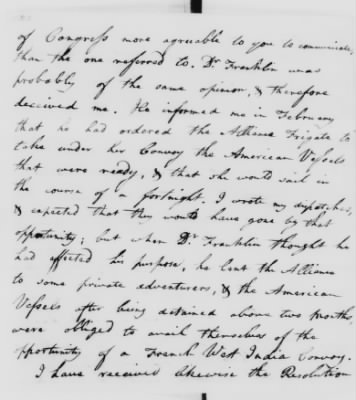 of Congress more agreuable to you to communicate,
than the one referred to. Dr. Franklin was
probably of the same opinion, & therefore
deceived me. He informed me in February
that he had ordered the Alliance Frigate to
take under her Convoy the American Vessels
that were ready, & that she would sail in
the course of a fortnight. I wrote my dispatches,
& expected that they would have gone by that
opportunity; but when Dr. Franklin thought he
had effected his purpose, he lent the Alliance
to some private adventurers, & the American
Vessels after being detained above two months,
were obliged to avail themselves of the
opportunity of a French West India Convoy.
I have received likewise the Resolution